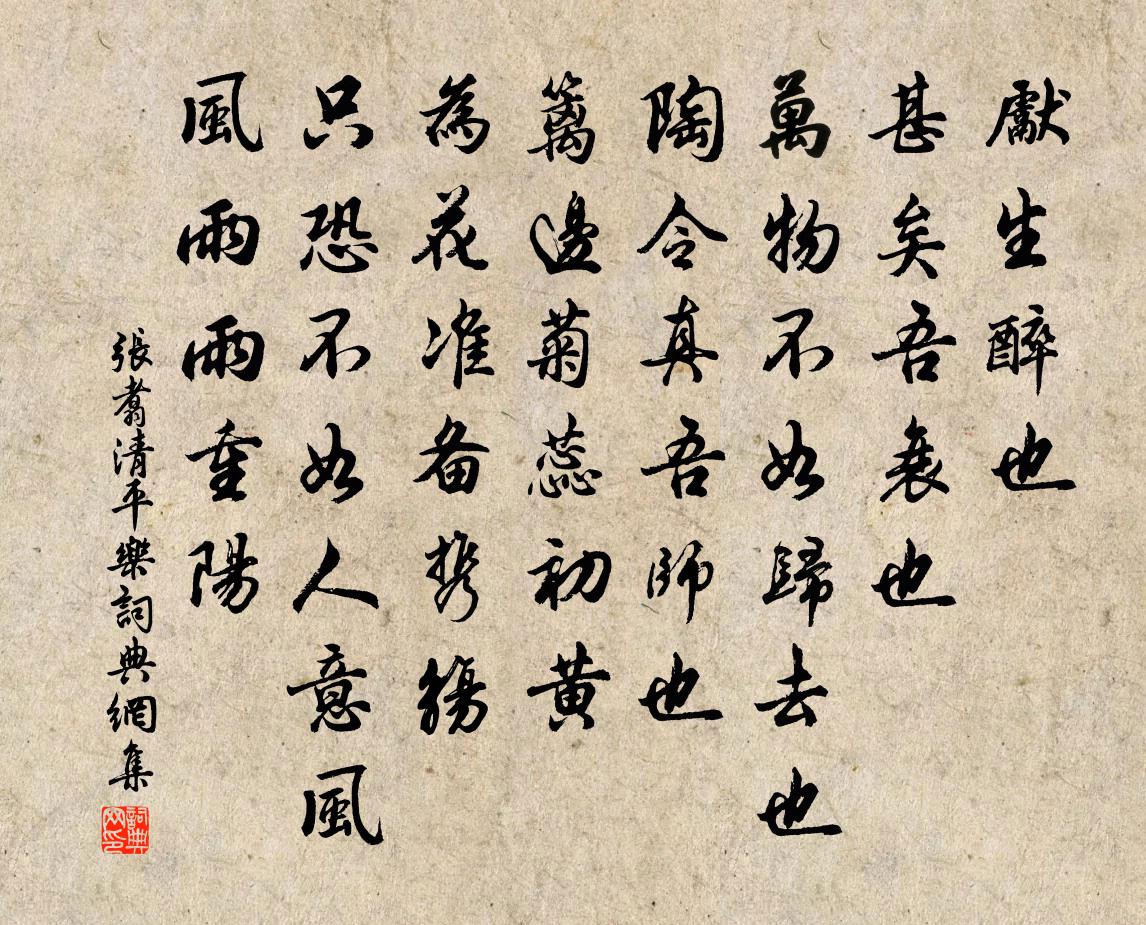 獻生醉也
甚矣吾衰也
萬物不如歸去也
陶令真吾師也
籬邊菊蕊初黃
為花准备携觴
只恐不如人意風
風雨雨重陽
張翥清平樂詞典網集
詞典网印